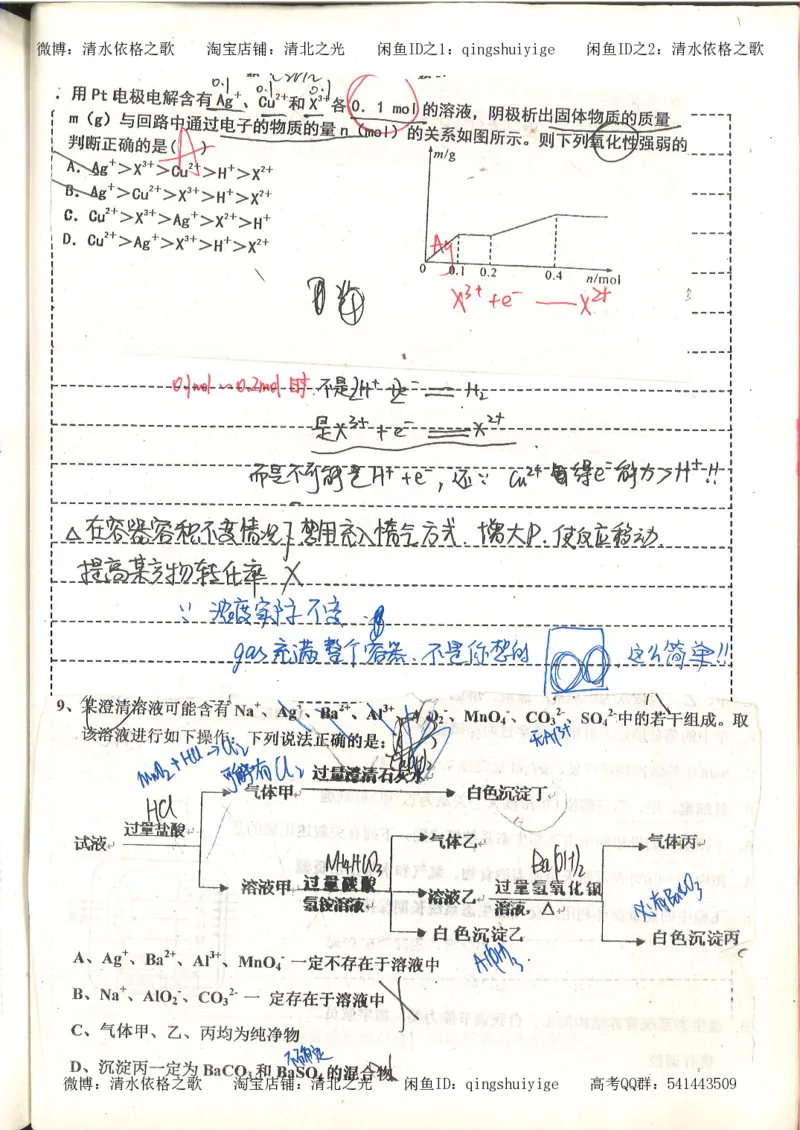 微博：清水依格之歌 淘宝店铺：清北之光 闲鱼ID之1：qingshuiyige 闲鱼ID之2：清水依格之歌
0.1 0.1 0.1
. 用 Pt 电极电解含有 Ag⁺、Cu²⁺和 X³⁺各 0.1 mol 的溶液，阴极析出固体物质的质量
m（g）与回路中通过电子的物质的量 n（mol）的关系如图所示。则下列氧化性强弱的
判断正确的是( A )
A. Ag⁺＞X³⁺＞Cu²⁺＞H⁺＞X²⁺
B. Ag⁺＞Cu²⁺＞X³⁺＞H⁺＞X²⁺
C. Cu²⁺＞X³⁺＞Ag⁺＞X²⁺＞H⁺
D. Cu²⁺＞Ag⁺＞X³⁺＞H⁺＞X²⁺
m/g
Ag
0 0.1 0.2 0.4 n/mol
X³⁺+e⁻ — X²⁺
0.1mol~0.2mol时 不是2H⁺ 2e⁻ == H₂
是X³⁺+e⁻ == X²⁺
而是不可能是H⁺+e⁻, 还∵ Cu²⁺ 得e⁻能力>H⁺!!
△在容器容积不变情况下想用充入惰气方式. 增大P. 使反应移动.
提高某产物转化率 X
∵ 浓度实际不变
gas充满整个容器. 不是你想的 这么简单!!
9、某澄清溶液可能含有 Na⁺、Ag⁺、Ba²⁺、Al³⁺、AlO₂⁻、MnO₄⁻、CO₃²⁻、SO₄²⁻中的若干组成。取
该溶液进行如下操作；下列说法正确的是：
无Al³⁺
MnO₂+HCl→Cl₂
可能有Cl₂
过量澄清石灰水
气体甲 白色沉淀丁
HCl
过量盐酸
试液
气体乙 气体丙
NH₄HCO₃ Ba(OH)₂
溶液甲 过量碳酸氢铵溶液 溶液乙 过量氢氧化钡溶液，△
必有BaCO₃
白色沉淀乙 白色沉淀丙
Al(OH)₃.
A、Ag⁺、Ba²⁺、Al³⁺、MnO₄⁻ 一定不存在于溶液中
B、Na⁺、AlO₂⁻、CO₃²⁻ 一 定存在于溶液中
C、气体甲、乙、丙均为纯净物
不确定
D、沉淀丙一定为 BaCO₃ 和 BaSO₄ 的混合物
微博：清水依格之歌 淘宝店铺：清北之光 闲鱼ID：qingshuiyige 高考QQ群：541443509